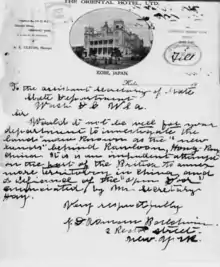 THE ORIENTAL HOTEL, LTD.
KOBE, JAPAN.
To the assistant secretary of State
State Department
Wash D C U S A
Sir
Would it not be well for your
department to investigate the
lands now known as the "new
lands" behind Kowloon, Hong Kong
China. It is an impudent attempt
on the part of the British to
more territory in China, and
in defiance of the "open door"
enunciated by Mr. Secretary
Hay.
Very respectfully
Baldwin
street
New York